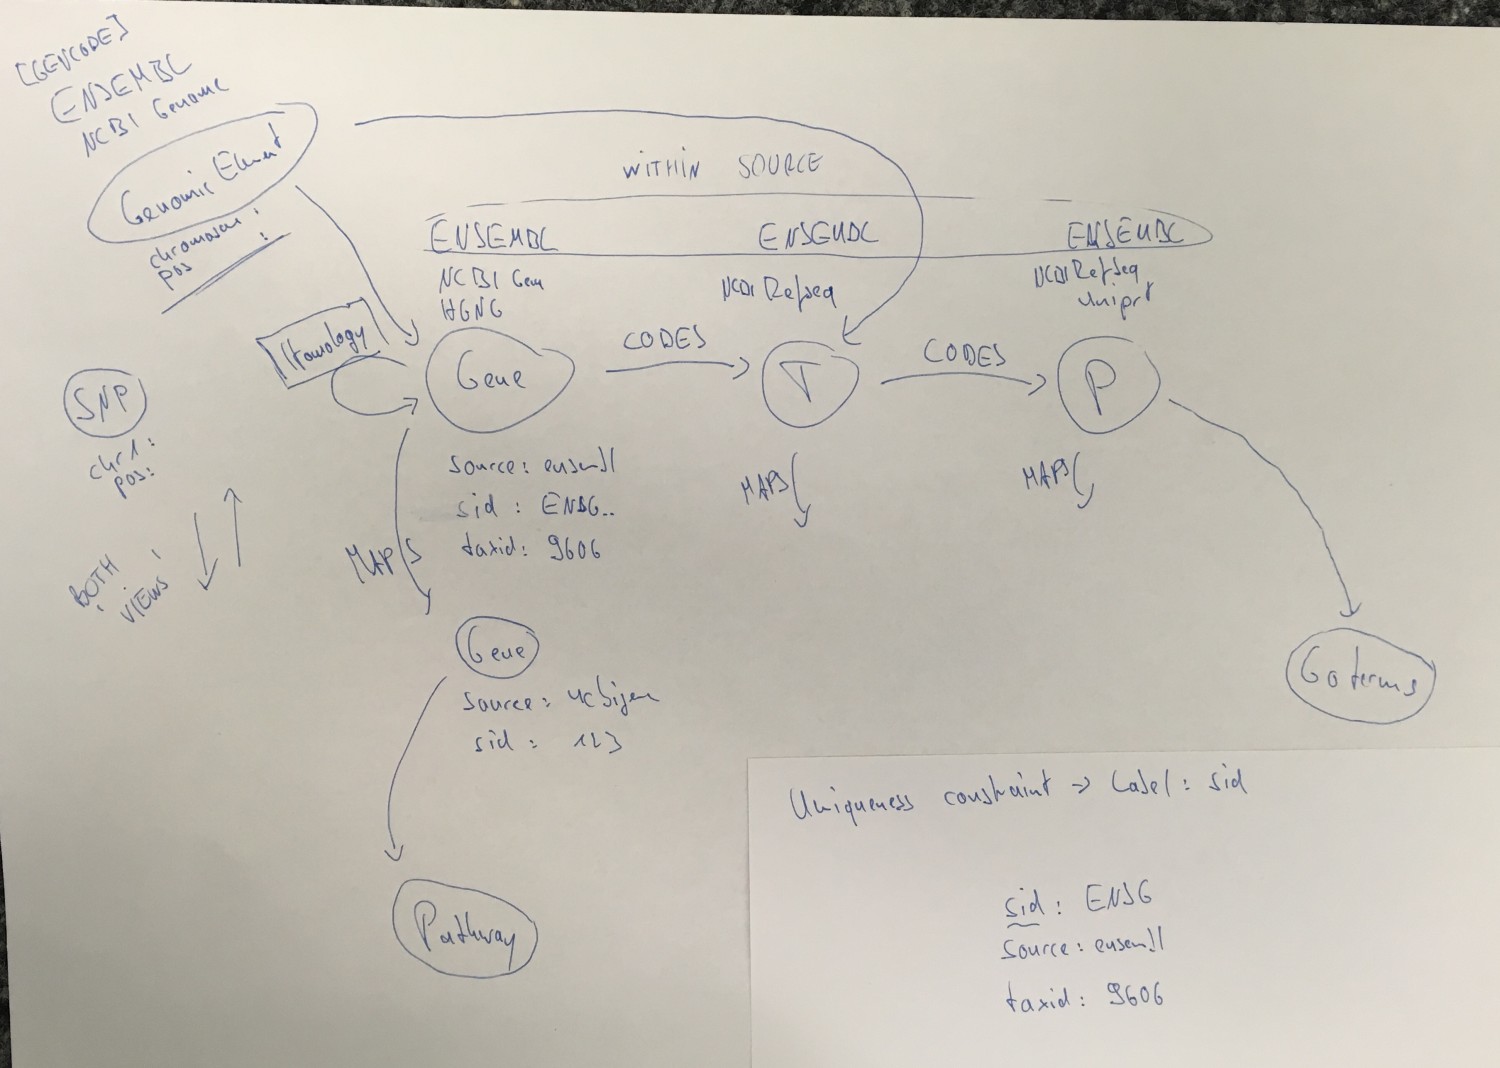 [GENCODE]
ENSEMBL
NCBI Genome
Genomic Element
chromosom:
pos :
WITHIN SOURCE
ENSEMBL
NCBI Gene
HGNC
ENSEMBL
NCBI RefSeq
ENSEMBL
NCBI RefSeq
Uniprt
Homology
Gene
CODES
T
CODES
P
SNP
chr1:
pos:
source: ensembl
sid : ENSG..
taxid: 9606
MAPS
MAPS
MAPS
BOTH
VIEWS
Gene
source: ncbigene
sid : 123
Go terms
Pathway
Uniqueness constraint → Label: sid
sid : ENSG
source: ensembl
taxid: 9606